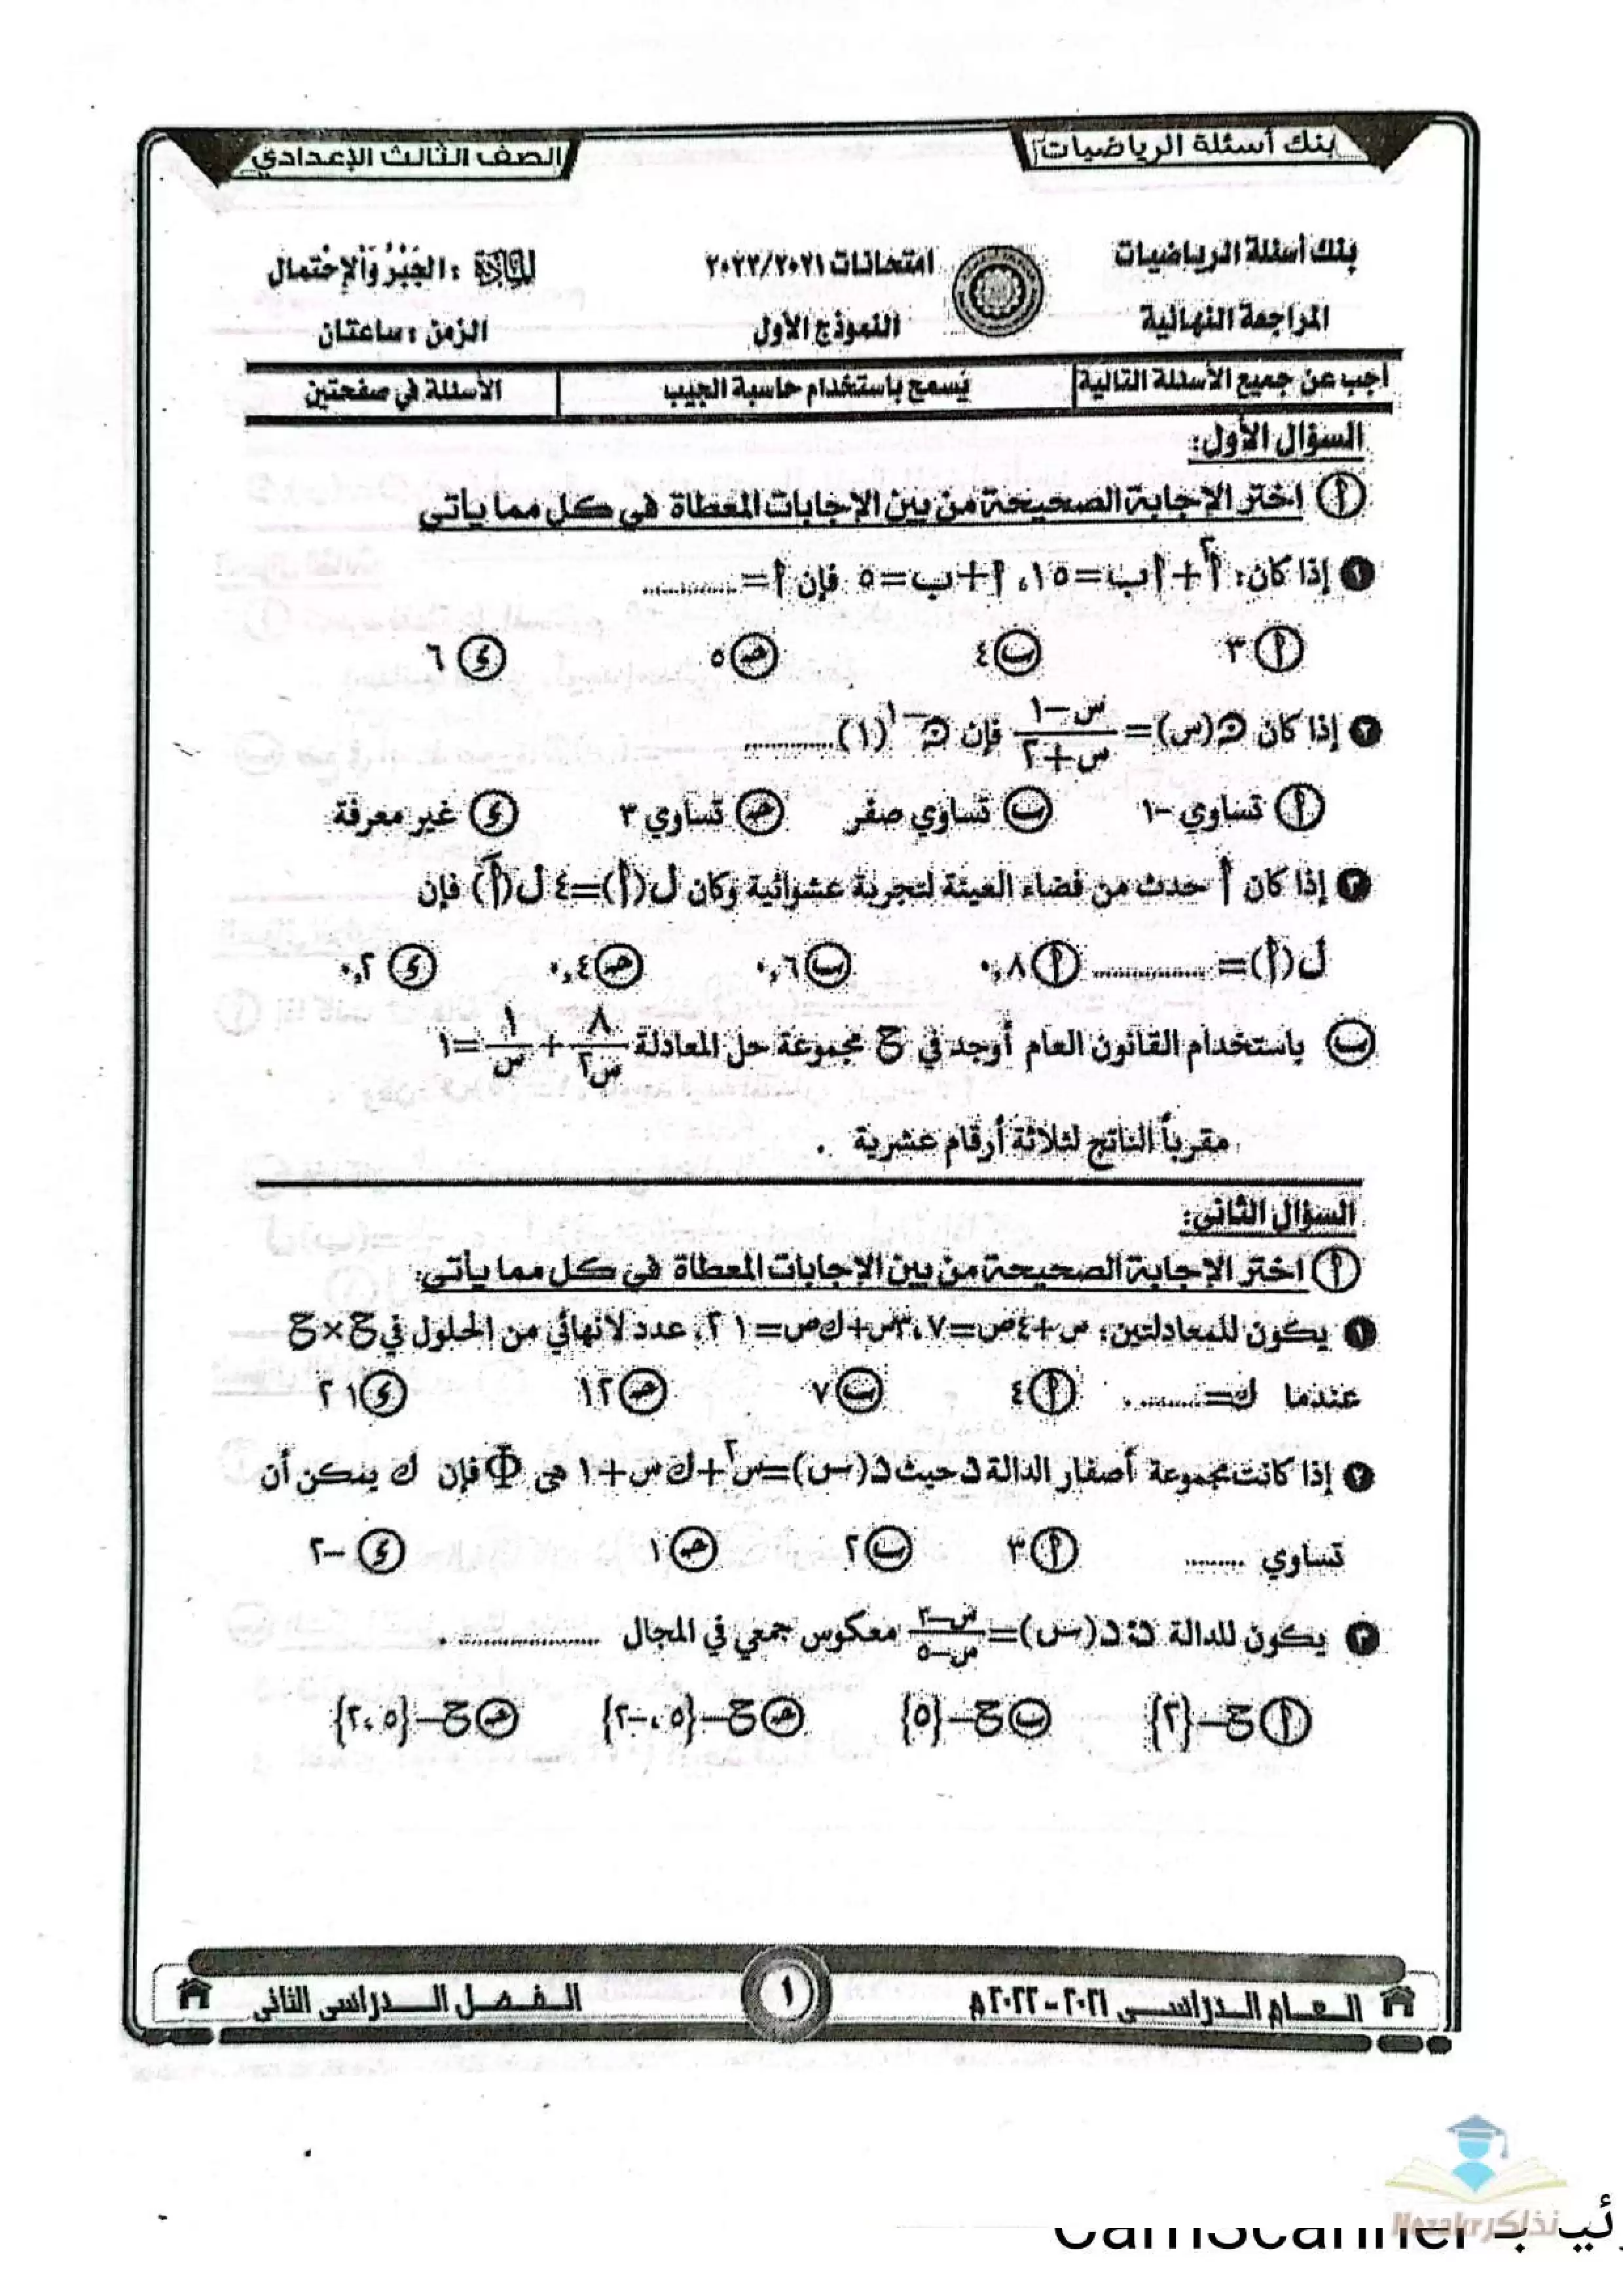 بنك أسئلة الرياضيات
الصف الثالث الإعدادي
بنك أسئلة الرياضيات
امتحانات ٢٠٢٢/٢٠٢١
المادة : الجَبْرُ وَالإِحْتمال
المراجعة النهائية
النموذج الأول
الزمن : ساعتان
أجب عن جميع الأسئلة التالية
يُسمح باستخدام حاسبة الجيب
الأسئلة في صفحتين
السؤال الأول:
أ اختر الإجابة الصحيحة من بين الإجابات المعطاة في كل مما يأتي
١ إذا كان: أ٢ + أب = ١٥، أ + ب = ٥ فإن أ = ............
أ ٣ ب ٤ جـ ٥ د ٦
٢ إذا كان ن(س) = (س − ١)/(س + ٢) فإن ن−١(١) ............
أ تساوي −١ ب تساوي صفر جـ تساوي ٣ د غير معرفة
٣ إذا كان أ حدث من فضاء العينة لتجربة عشوائية وكان ل(أ) = ٤ ل(أَ) فإن
ل(أ) = ............ أ ٠,٨ ب ٠,٦ جـ ٠,٤ د ٠,٢
ب باستخدام القانون العام أوجد في ح مجموعة حل المعادلة ٨/س٢ + ١/س = ١
مقرباً الناتج لثلاثة أرقام عشرية .
السؤال الثاني:
أ اختر الإجابة الصحيحة من بين الإجابات المعطاة في كل مما يأتي:
١ يكون للمعادلتين: س + ٤ص = ٧، ٣س + ك ص = ٢١، عدد لا نهائي من الحلول في ح × ح
عندما ك = ......... . أ ٤ ب ٧ جـ ١٢ د ٢١
٢ إذا كانت مجموعة أصفار الدالة د حيث د(س) = س٢ + ك س + ١ هى Φ فإن ك يمكن أن
تساوي ......... أ ٣ ب ٢ جـ ١ د −٢
٣ يكون للدالة د: د(س) = (س − ٢)/(س − ٥) معكوس جمعي في المجال .................. .
أ ح − {٢} ب ح − {٥} جـ ح − {٥، −٢} جـ ح − {٢، ٥}
العام الدراسى ٢٠٢١ - ٢٠٢٢م
١
الفصل الدراسى الثانى
نذاكر Nezakr
CamScanner بـ